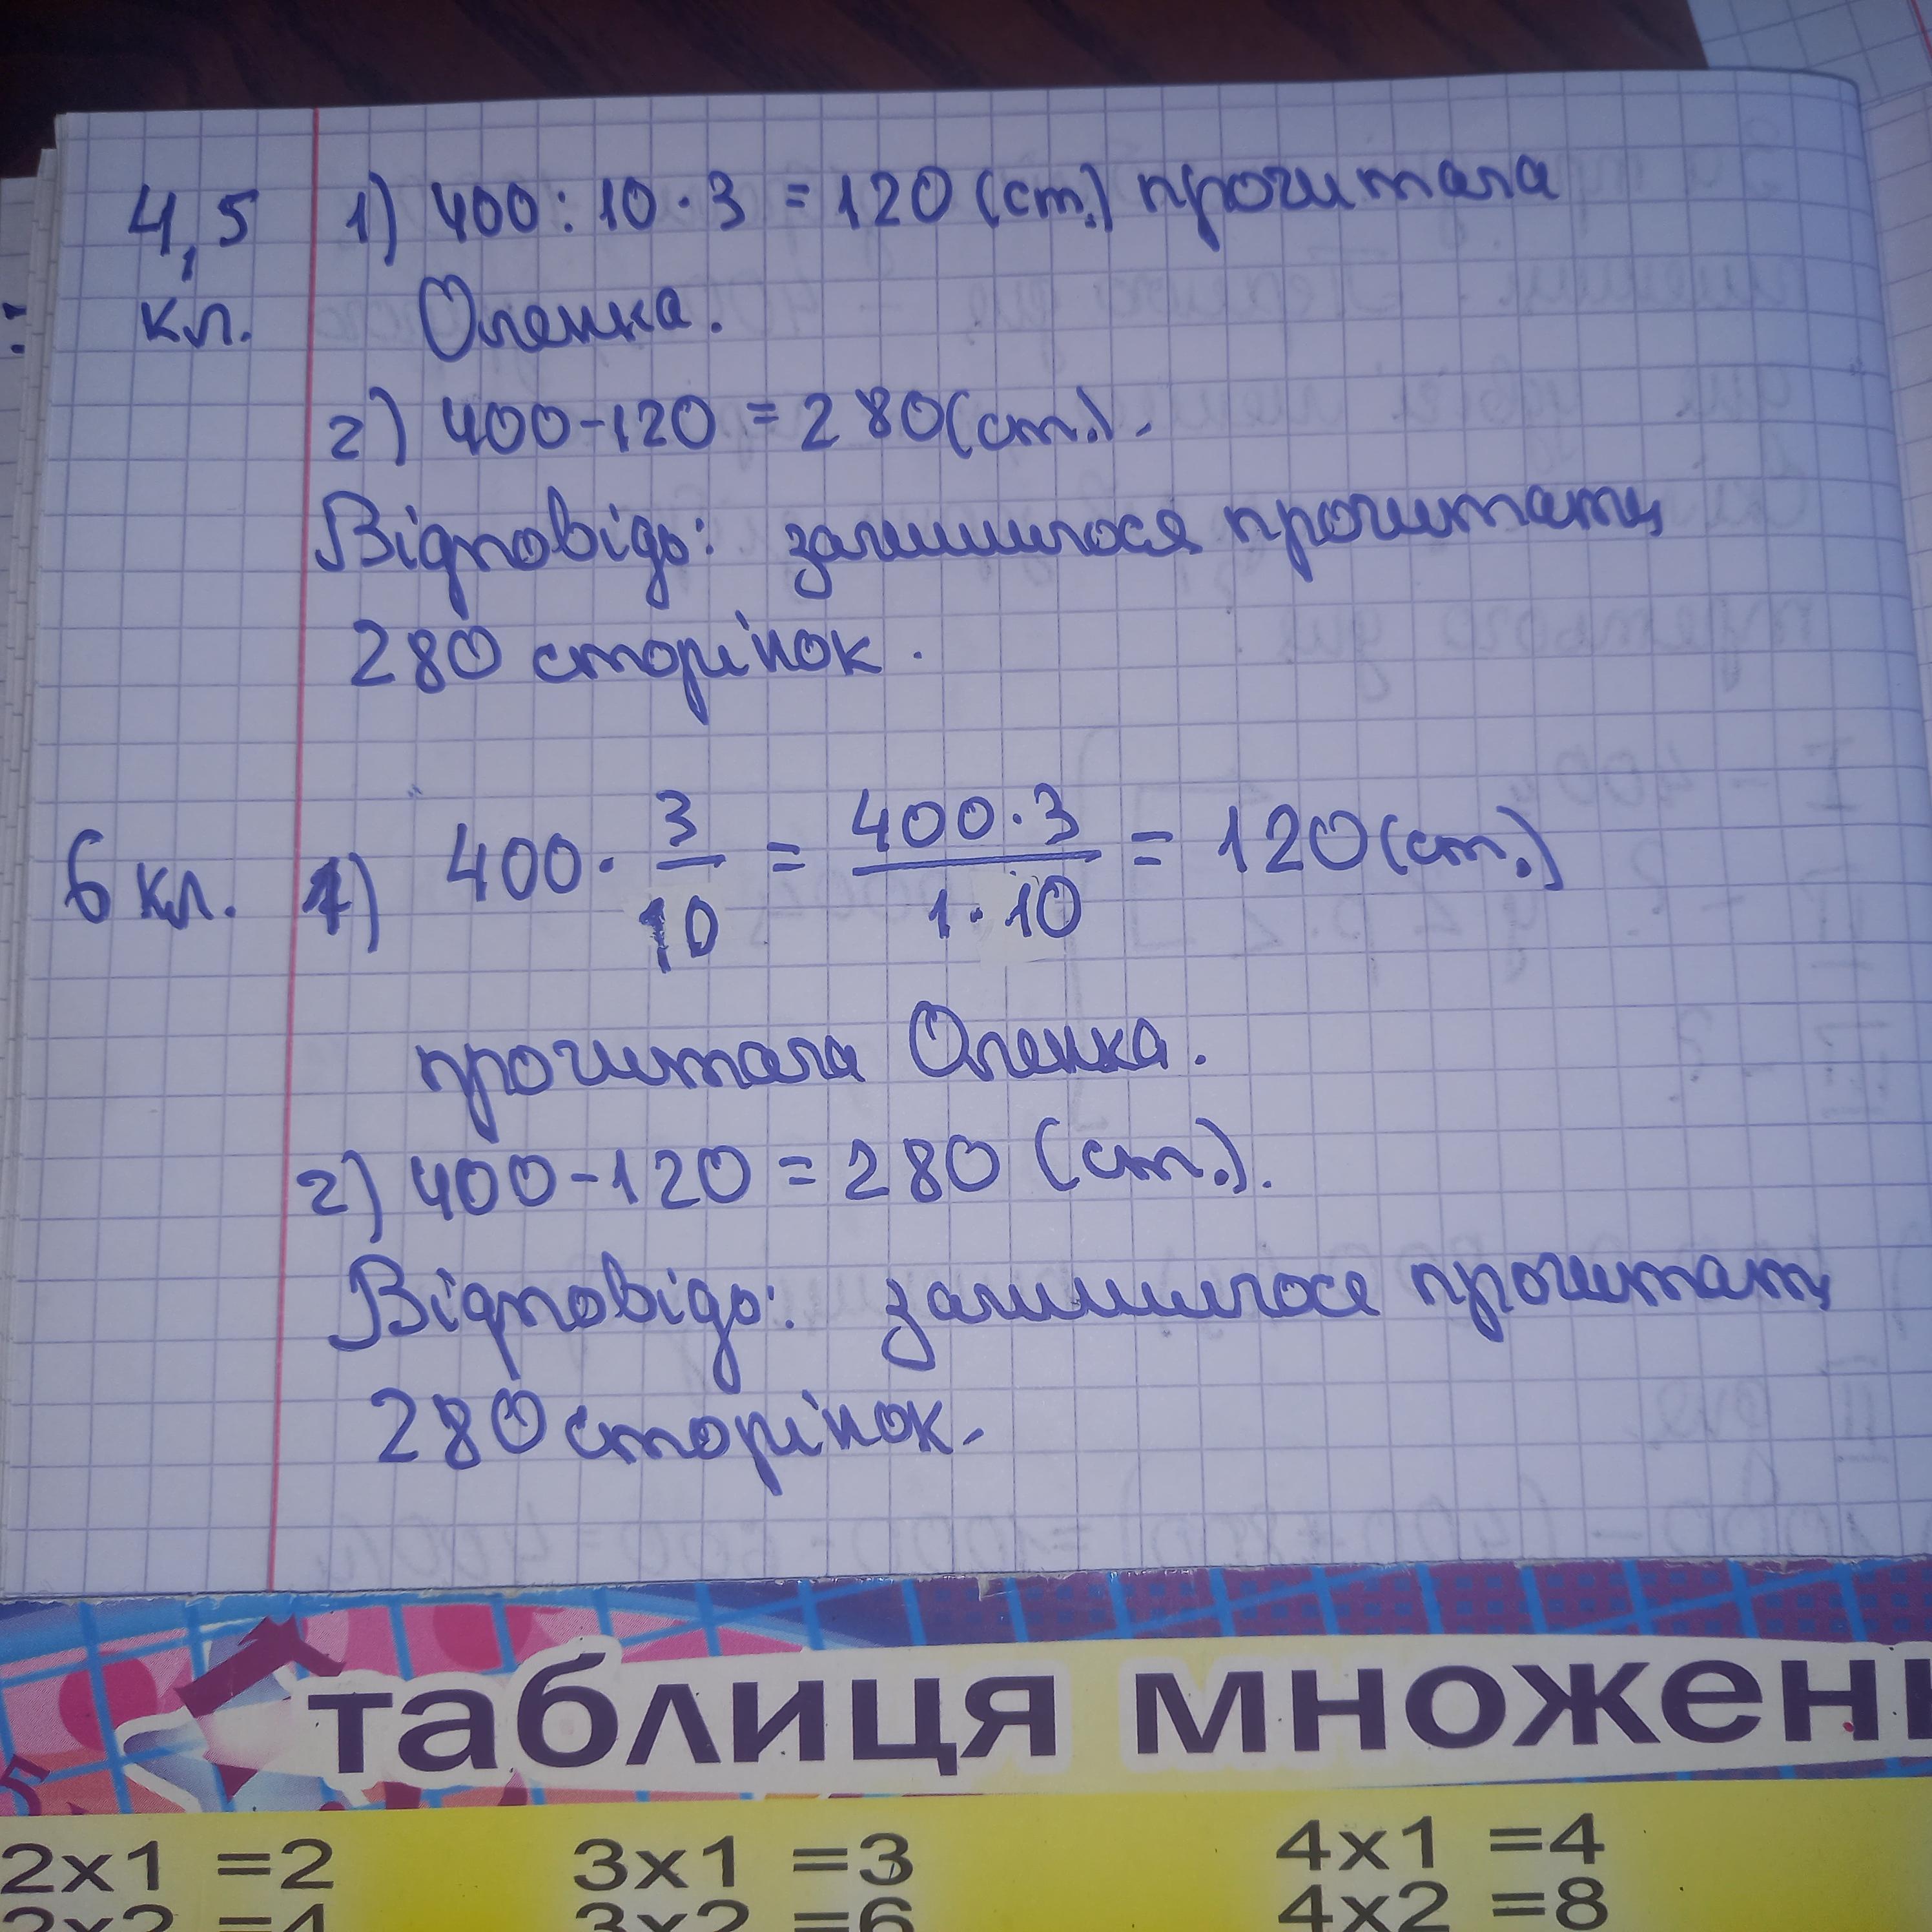 4,5 1) 400 : 10 · 3 = 120 (ст.) прочитала
кл. Оленка.
2) 400 - 120 = 280 (ст.).
Відповідь: залишилося прочитати
280 сторінок.
6 кл. 1) 400 · 3/10 = 400 · 3 / 1 · 10 = 120 (ст.)
прочитала Оленка.
2) 400 - 120 = 280 (ст.).
Відповідь: залишилося прочитати
280 сторінок.
таблиця множенн
2x1 =2 3x1 =3 4x1 =4
2x2 =4 3x2 =6 4x2 =8